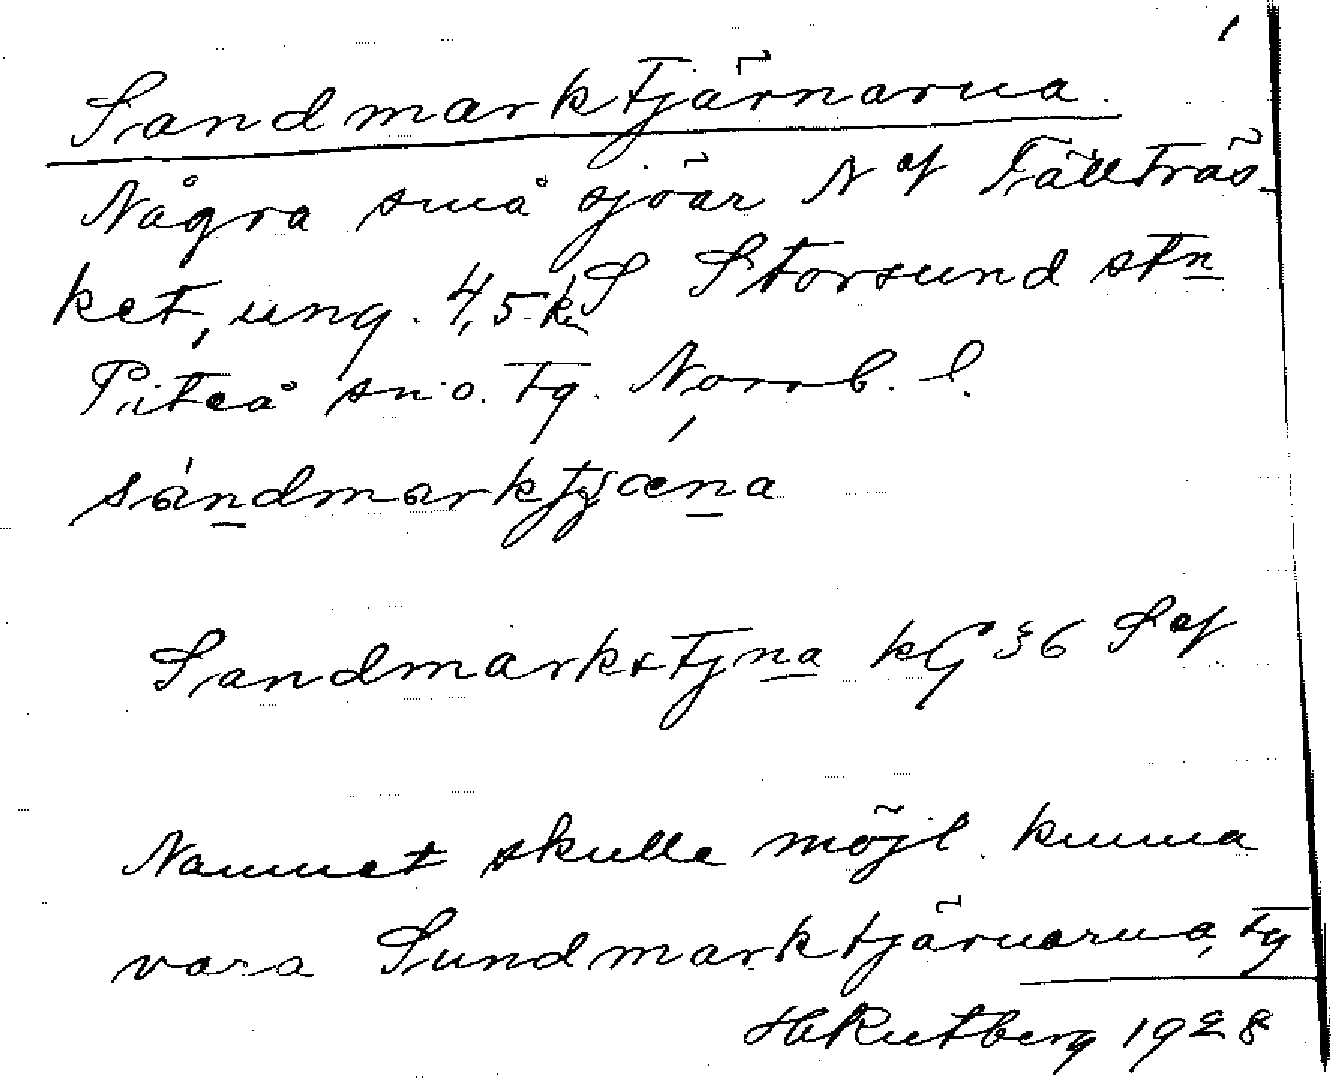 Sandmarktjärnarna.
Några små sjöar N of Fällträs-
ket, ung. 4,5 k S Storsund stn
Piteå sn o. tg. Norrb. l.
sandmarktjæna
Sandmarkstjna kG 36 S of
Namnet skulle möjl. kunna
vara Sundmarktjärnarna, tg
H Rutberg 1928